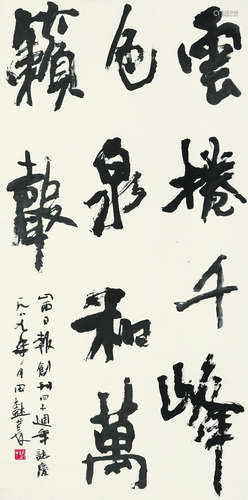 雲捲千峰
色泉和萬
籟聲
山西日報創刊四十週年誌慶
一九八九年